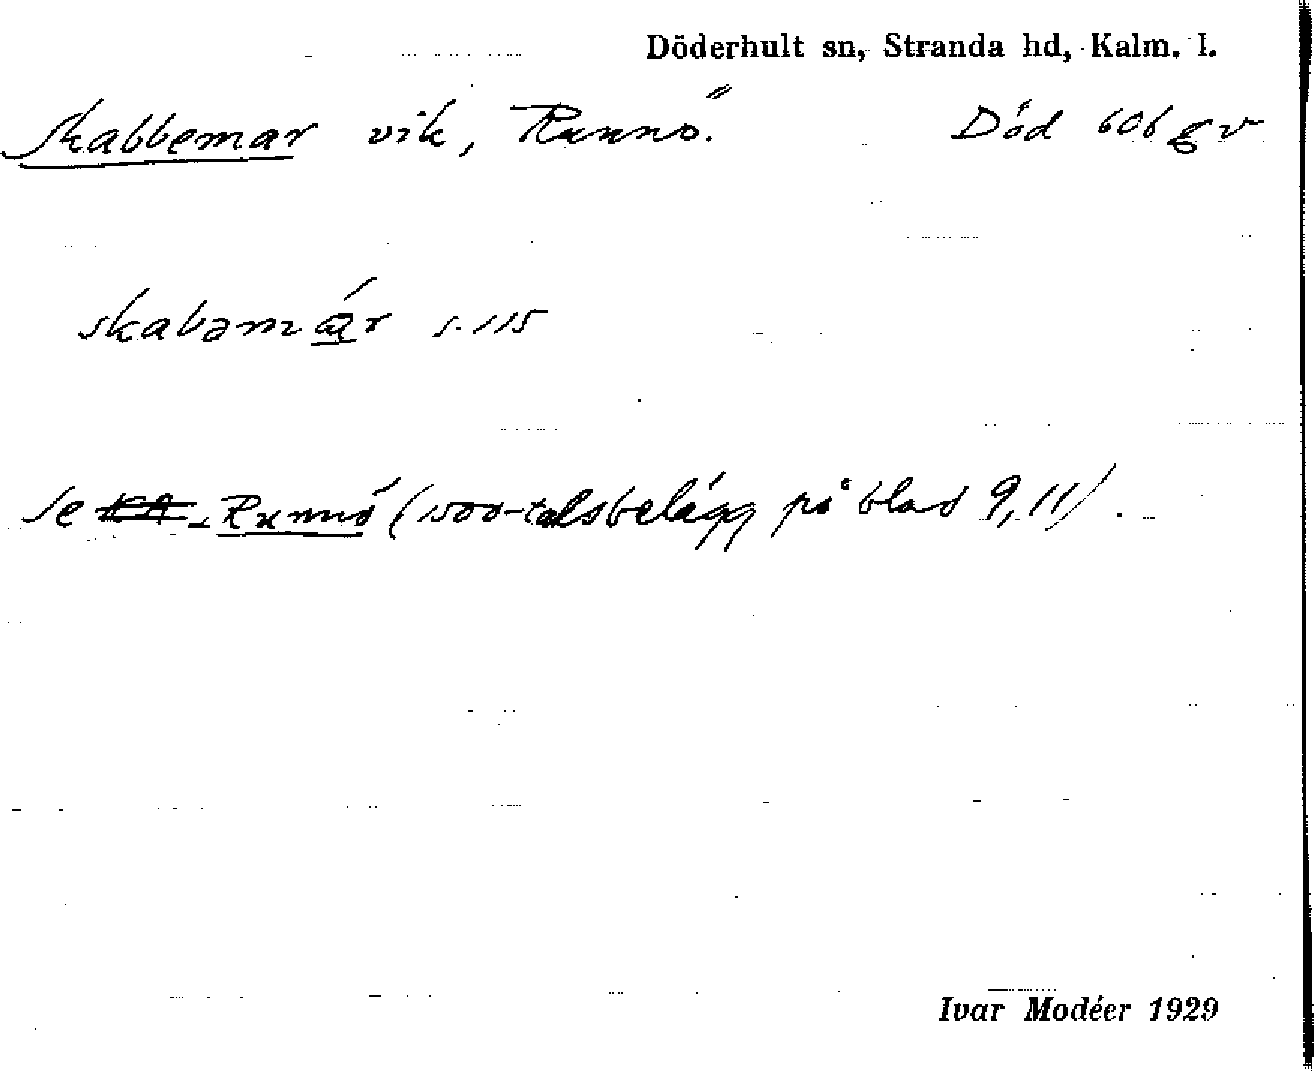 Döderhult sn, Stranda hd, Kalm. l.
Skabbemar vik, Runnö. Död 606 gv
skabəmá̱r s. 115
Se Runnö (1500-talsbelägg på blad 9, 11).
Ivar Modéer 1929